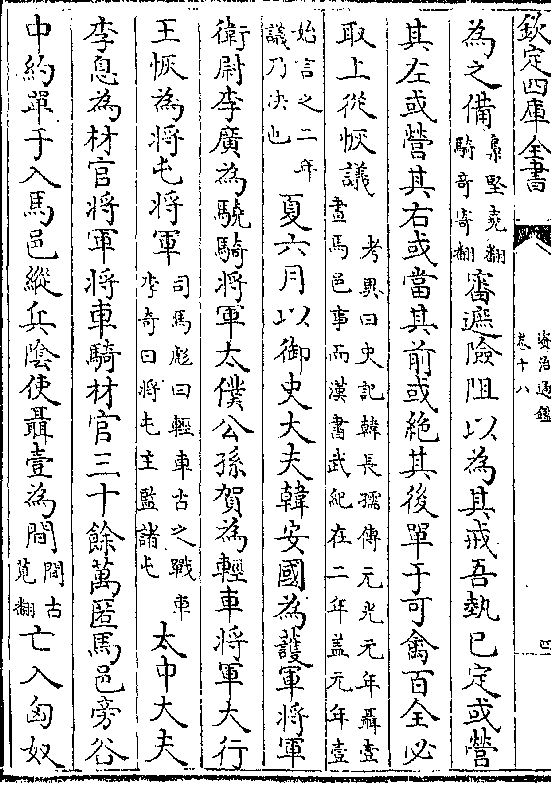 欽定四庫全書
資治通鑑
卷十八
四
為之備梟堅堯翻騎奇寄翻審遮險阻以為其戒吾執已定或營
其左或營其右或當其前或絶其後單于可禽百全必
取上從恢議考異曰史記韓長孺傳元光元年聶壹畫馬邑事而漢書武紀在二年盖元年壹
始言之二年議乃决也夏六月以御史大夫韓安國為護軍將軍
衛尉李廣為驍騎將軍太僕公孫賀為輕車將軍大行
王恢為將屯將軍司馬彪曰輕車古之戰車李奇曰將屯主監諸屯太中大夫
李息為材官將軍將車騎材官三十餘萬匿馬邑旁谷
中約單于入馬邑縱兵陰使聶壹為間間古莧翻亡入匈奴